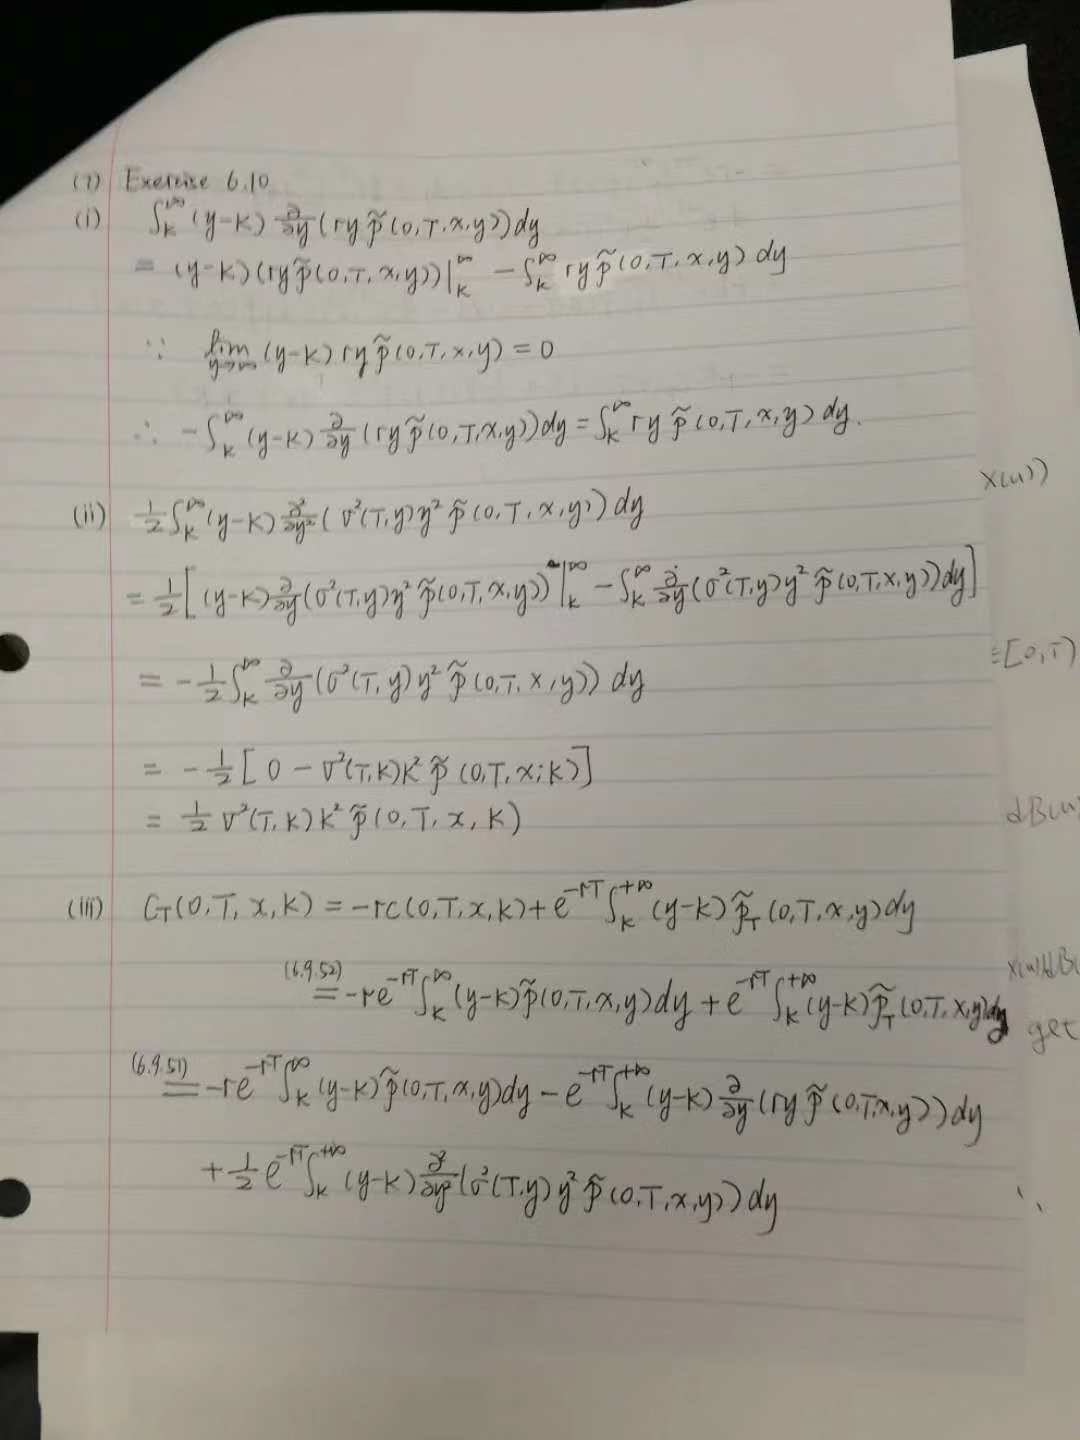 (7) Exercise 6.10
(i) ∫_K^∞ (y-K) ∂/∂y (ry p̃(0,T,x,y)) dy
= (y-K)(ry p̃(0,T,x,y))|_K^∞ - ∫_K^∞ ry p̃(0,T,x,y) dy
∵ lim_{y→∞} (y-K) ry p̃(0,T,x,y) = 0
∴ -∫_K^∞ (y-K) ∂/∂y (ry p̃(0,T,x,y)) dy = ∫_K^∞ ry p̃(0,T,x,y) dy.
X(u))
(ii) 1/2 ∫_K^∞ (y-K) ∂²/∂y² (σ²(T,y)y² p̃(0,T,x,y)) dy
= 1/2 [(y-K) ∂/∂y (σ²(T,y)y² p̃(0,T,x,y))|_K^∞ - ∫_K^∞ ∂/∂y (σ²(T,y)y² p̃(0,T,x,y)) dy]
[0,T)
= -1/2 ∫_K^∞ ∂/∂y (σ²(T,y)y² p̃(0,T,x,y)) dy
= -1/2 [0 - σ²(T,K)K² p̃(0,T,x,K)]
= 1/2 σ²(T,K)K² p̃(0,T,x,K)
dB(u)
(iii) C_T(0,T,x,K) = -rc(0,T,x,K) + e^{-rT} ∫_K^{+∞} (y-K) p̃_T(0,T,x,y) dy
(6.9.52)
= -re^{-rT} ∫_K^∞ (y-K) p̃(0,T,x,y) dy + e^{-rT} ∫_K^{+∞} (y-K) p̃_T(0,T,x,y) dy
get
(6.9.51)
= -re^{-rT} ∫_K^∞ (y-K) p̃(0,T,x,y) dy - e^{-rT} ∫_K^{+∞} (y-K) ∂/∂y (ry p̃(0,T,x,y)) dy
+ 1/2 e^{-rT} ∫_K^{+∞} (y-K) ∂²/∂y² (σ²(T,y)y² p̃(0,T,x,y)) dy